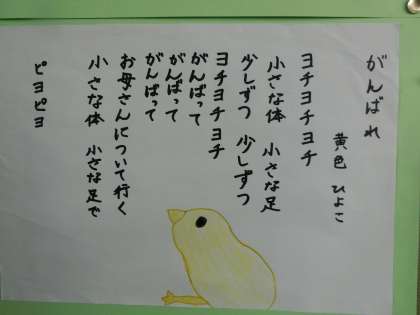 がんばれ
黄色 ひよこ
ヨチヨチヨチ
小さな体 小さな足
少しずつ 少しずつ
ヨチヨチヨチ
がんばって
がんばって
がんばって
お母さんについて行く
小さな体 小さな足で
ピヨピヨ